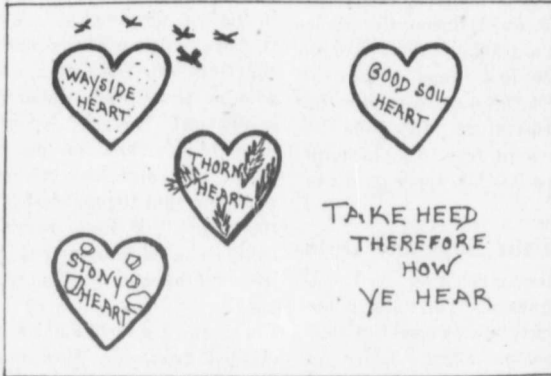 WAYSIDE
HEART
GOOD SOIL
HEART
THORN
HEART
STONY
HEART
TAKE HEED
THEREFORE
HOW
YE HEAR